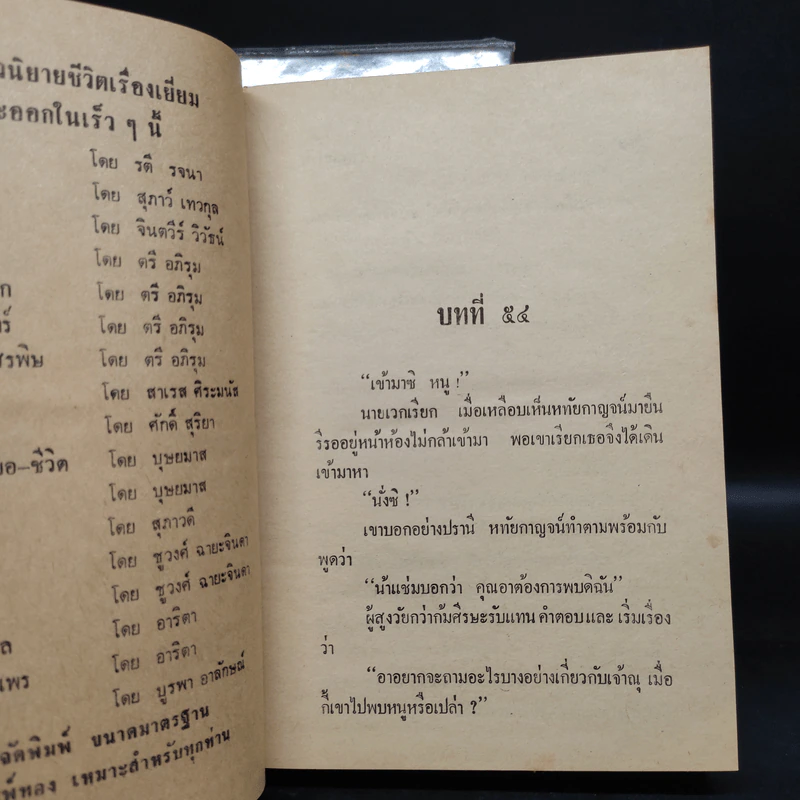 นิยายชีวิตเรื่องเยี่ยม
ะออกในเร็ว ๆ นี้
โดย รตี รจนา
โดย สุภาว์ เทวกุล
โดย จินตวีร์ วิวัธน์
โดย ตรี อภิรุม
ก โดย ตรี อภิรุม
ร์ โดย ตรี อภิรุม
สรพิษ โดย ตรี อภิรุม
โดย สาเรส ศิระมนัส
โดย ศักดิ์ สุริยา
อ–ชีวิต โดย บุษยมาส
โดย บุษยมาส
โดย สุภาวดี
โดย ชูวงศ์ ฉายะจินดา
โดย ชูวงศ์ ฉายะจินดา
โดย อาริตา
ล โดย อาริตา
แพร โดย บูรพา อาลักษณ์
จัดพิมพ์ ขนาดมาตรฐาน
พ์ทอง เหมาะสำหรับทุกท่าน
บทที่ ๕๔
“เข้ามาซิ หนู !”
นายเวกเรียก เมื่อเหลือบเห็นหทัยกาญจน์มายืน
รีรออยู่หน้าห้องไม่กล้าเข้ามา พอเขาเรียกเธอจึงได้เดิน
เข้ามาหา
“นั่งซิ !”
เขาบอกอย่างปรานี หทัยกาญจน์ทำตามพร้อมกับ
พูดว่า
“น้าแช่มบอกว่า คุณอาต้องการพบดิฉัน”
ผู้สูงวัยกว่าก้มศีรษะรับแทน คำตอบและ เริ่มเรื่อง
ว่า
“อาอยากจะถามอะไรบางอย่างเกี่ยวกับเจ้าณุ เมื่อ
กี้เขาไปพบหนูหรือเปล่า ?”